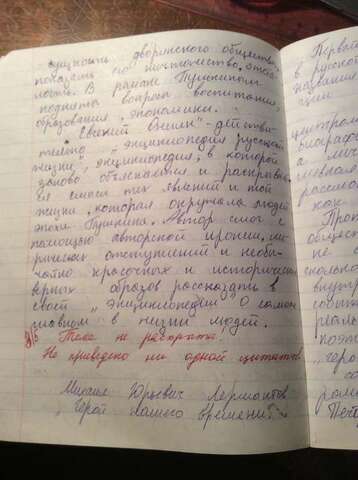 сущность дворянского общества,
показать его ничтожество, эгоис-
тость. В романе Пушкиным
подняты вопросы воспитания,
образования, экономики.
"Евгений Онегин" - действи-
тельно "энциклопедия русской
жизни", энциклопедия, в которой
заново объясняется и раскрывае-
ся смысл тех явлений и той
жизни, которая окружала людей
эпохи Пушкина. Автор смог с
помощью авторской иронии, ли-
рических отступлений и необы-
чайно красочных и исторически
верных образов рассказать в
своей "энциклопедии" о самом
главном в жизни людей.
Тема не раскрыта!
Не приведено ни одной цитаты!
Михаил Юрьевич Лермонтов
"Герой нашего времени".
Первом
в русской
названии
ции
центром
биограф
а
рассма
как
Про
обществ
не
внутр
реаль
поэт
"геро
со
рома
Печ